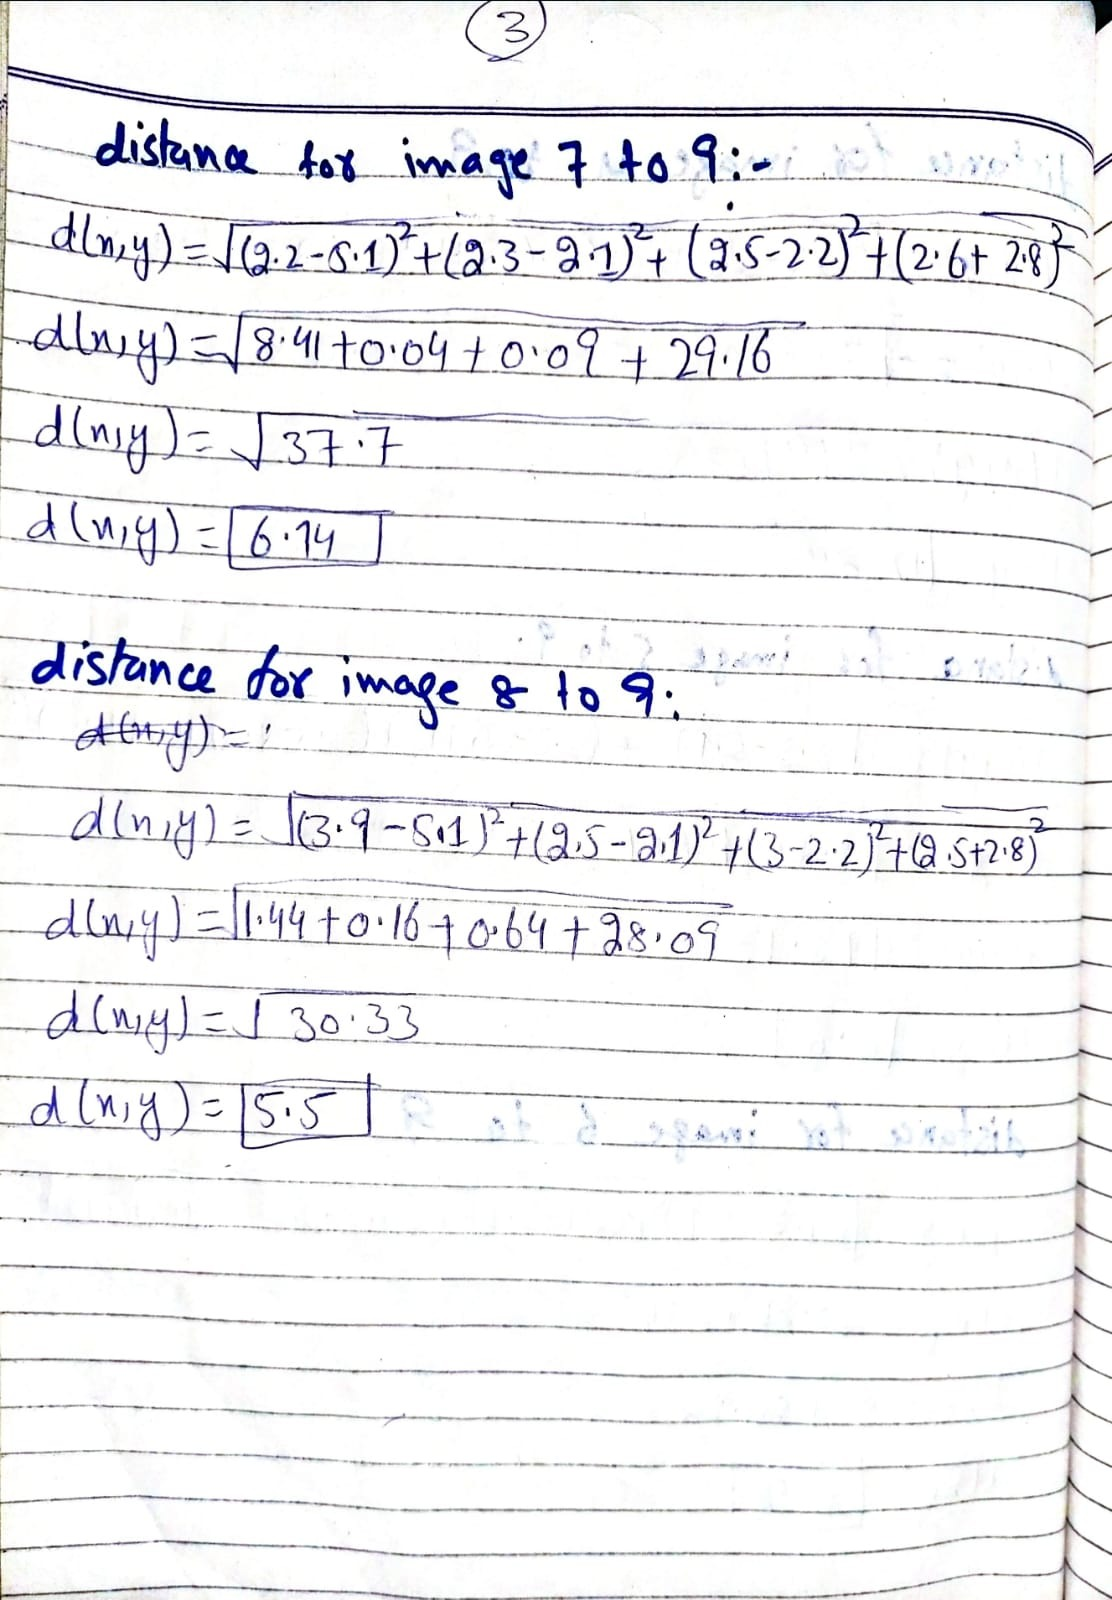 3
distance for image 7 to 9:-
d(n,y) = √(2.2-5.1)²+(2.3-2.1)²+(2.5-2.2)²+(2.6+2.8)²
d(n,y) = √8.41+0.04+0.09+29.16
d(n,y) = √37.7
d(n,y) = 6.14
distance for image 8 to 9:
d(n,y) =
d(n,y) = √(3.9-5.1)²+(2.5-2.1)²+(3-2.2)²+(2.5+2.8)²
d(n,y) = √1.44+0.16+0.64+28.09
d(n,y) = √30.33
d(n,y) = 5.5